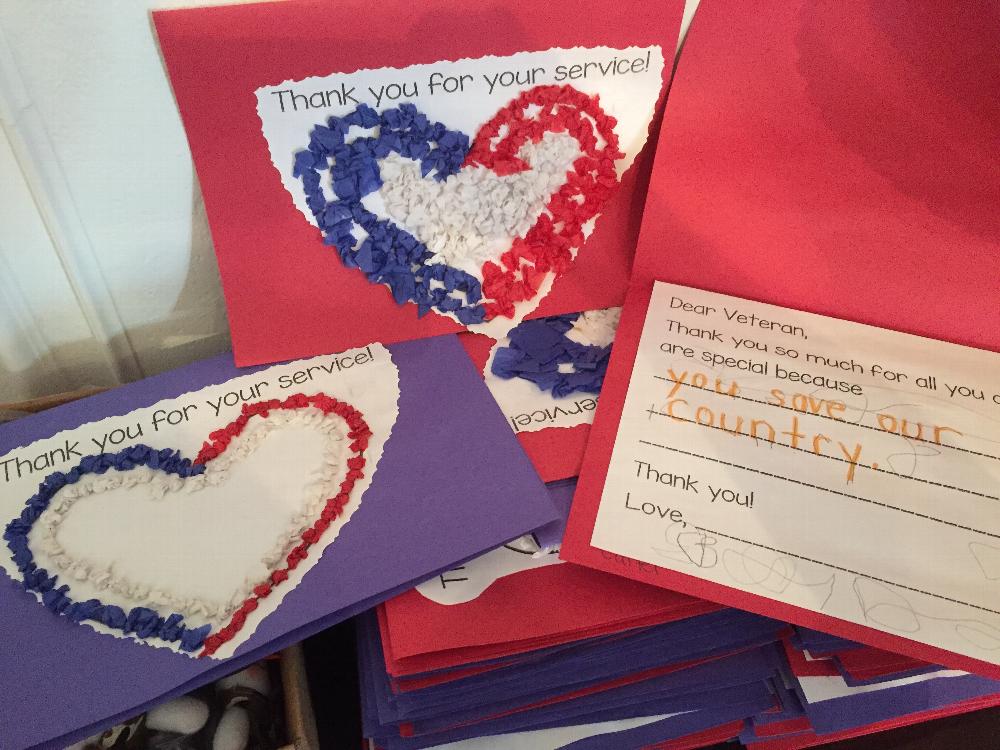 Thank you for your service!
Thank you for your service!
service!
Dear Veteran,
Thank you so much for all you
are special because
you save our
country.
Thank you!
Love,